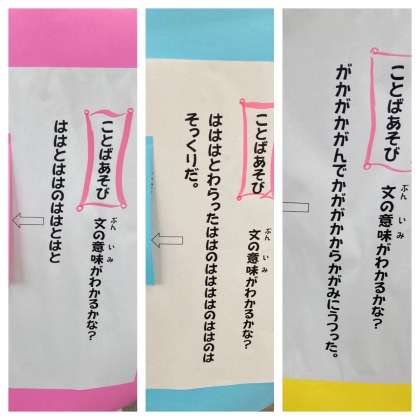 ことばあそび
文の意味がわかるかな?
ぶん いみ
ははとははのははとはと
ことばあそび
文の意味がわかるかな?
ぶん いみ
はははとわらったははのははははのははのは
そっくりだ。
ことばあそび
文の意味がわかるかな?
ぶん いみ
がかがかがんでかががかからかがみにうつった。